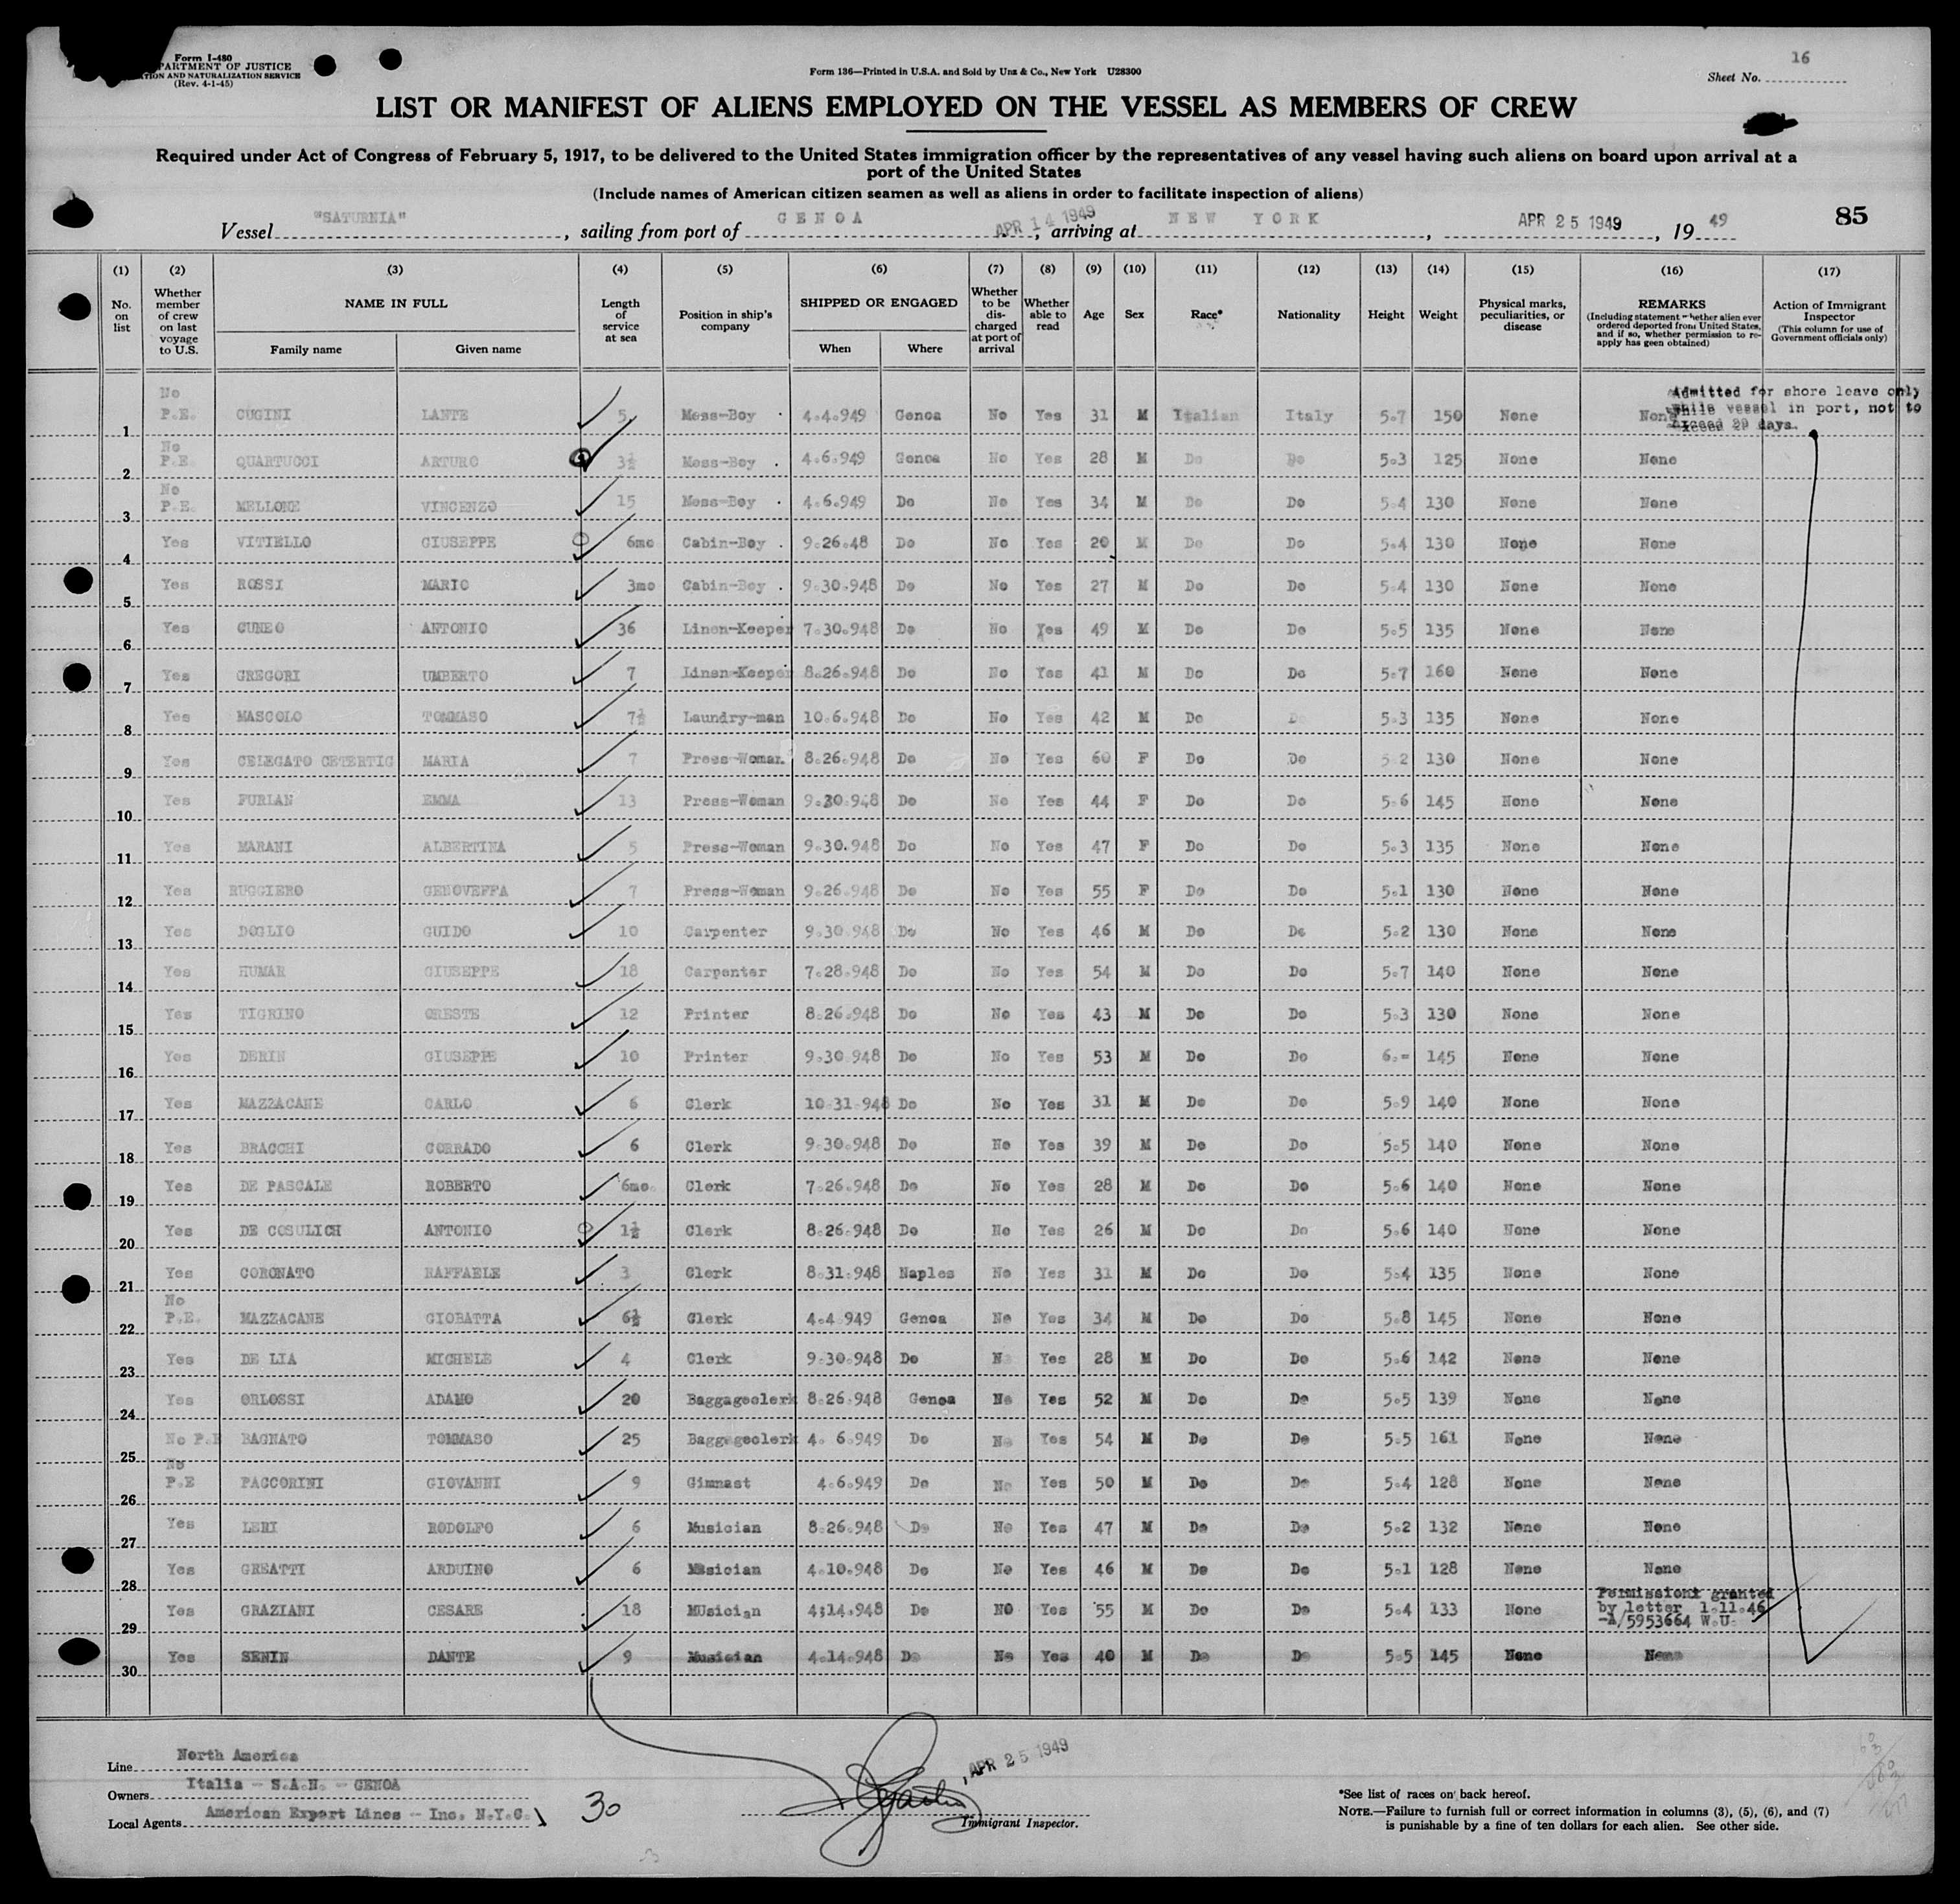 Form I-480
PARTMENT OF JUSTICE
TION AND NATURALIZATION SERVICE
(Rev. 4-1-45)
Form 136—Printed in U.S.A. and Sold by Unz & Co., New York U28300
16
Sheet No.
LIST OR MANIFEST OF ALIENS EMPLOYED ON THE VESSEL AS MEMBERS OF CREW
Required under Act of Congress of February 5, 1917, to be delivered to the United States immigration officer by the representatives of any vessel having such aliens on board upon arrival at a
port of the United States
(Include names of American citizen seamen as well as aliens in order to facilitate inspection of aliens)
Vessel "SATURNIA", sailing from port of GENOA APR 14 1949, arriving at NEW YORK, APR 25 1949, 19 49
85
(1) (2) (3) (4) (5) (6) (7) (8) (9) (10) (11) (12) (13) (14) (15) (16) (17)
No. on list
Whether member of crew on last voyage to U.S.
NAME IN FULL
Family name Given name
Length of service at sea
Position in ship's company
SHIPPED OR ENGAGED
When Where
Whether to be discharged at port of arrival
Whether able to read
Age
Sex
Race*
Nationality
Height
Weight
Physical marks, peculiarities, or disease
REMARKS
(Including statement whether alien ever ordered deported from United States, and if so, whether permission to re-apply has geen obtained)
Action of Immigrant Inspector
(This column for use of Government officials only)
Admitted for shore leave only
while vessel in port, not to
exceed 29 days.
1 No P.E. CUGINI LANTE 5 Mess-Boy 4.4.949 Genoa No Yes 31 M Italian Italy 5.7 150 None None
2 No P.E. QUARTUCCI ARTURO 3½ Mess-Boy 4.6.949 Genoa No Yes 28 M Do Do 5.3 125 None None
3 No P.E. MELLONE VINCENZO 15 Mess-Boy 4.6.949 Do No Yes 34 M Do Do 5.4 130 None None
4 Yes VITIELLO GIUSEPPE 6mo Cabin-Boy 9.26.48 Do No Yes 20 M Do Do 5.4 130 None None
5 Yes ROSSI MARIO 3mo Cabin-Boy 9.30.948 Do No Yes 27 M Do Do 5.4 130 None None
6 Yes CUNEO ANTONIO 36 Linen-Keeper 7.30.948 Do No Yes 49 M Do Do 5.5 135 None None
7 Yes GREGORI UMBERTO 7 Linen-Keeper 8.26.948 Do No Yes 41 M Do Do 5.7 160 None None
8 Yes MASCOLO TOMMASO 7½ Laundry-man 10.6.948 Do No Yes 42 M Do Do 5.3 135 None None
9 Yes CELEGATO CETERTIG MARIA 7 Press-Woman 8.26.948 Do No Yes 60 F Do Do 5.2 130 None None
10 Yes FURLAN EMMA 13 Press-Woman 9.30.948 Do No Yes 44 F Do Do 5.6 145 None None
11 Yes MARANI ALBERTINA 5 Press-Woman 9.30.948 Do No Yes 47 F Do Do 5.3 135 None None
12 Yes RUGGIERO GENOVEFFA 7 Press-Woman 9.26.948 Do No Yes 55 F Do Do 5.1 130 None None
13 Yes DOGLIO GUIDO 10 Carpenter 9.30.948 Do No Yes 46 M Do Do 5.2 130 None None
14 Yes HUMAR GIUSEPPE 18 Carpenter 7.28.948 Do No Yes 54 M Do Do 5.7 140 None None
15 Yes TIGRINO ORESTE 12 Printer 8.26.948 Do No Yes 43 M Do Do 5.3 130 None None
16 Yes DERIN GIUSEPPE 10 Printer 9.30.948 Do No Yes 53 M Do Do 6.= 145 None None
17 Yes MAZZACANE CARLO 6 Clerk 10.31.948 Do No Yes 31 M Do Do 5.9 140 None None
18 Yes BRACCHI CORRADO 6 Clerk 9.30.948 Do No Yes 39 M Do Do 5.5 140 None None
19 Yes DE PASCALE ROBERTO 6mo. Clerk 7.26.948 Do No Yes 28 M Do Do 5.6 140 None None
20 Yes DE COSULICH ANTONIO 1½ Clerk 8.26.948 Do No Yes 26 M Do Do 5.6 140 None None
21 Yes CORONATO RAFFAELE 3 Clerk 8.31.948 Naples No Yes 31 M Do Do 5.4 135 None None
22 No P.E. MAZZACANE GIOBATTA 6½ Clerk 4.4.949 Genoa No Yes 34 M Do Do 5.8 145 None None
23 Yes DE LIA MICHELE 4 Clerk 9.30.948 Do No Yes 28 M Do Do 5.6 142 None None
24 Yes ORLOSSI ADAMO 20 Baggageclerk 8.26.948 Genoa No Yes 52 M Do Do 5.5 139 None None
25 No P.E BAGNATO TOMMASO 25 Baggageclerk 4. 6.949 Do No Yes 54 M Do Do 5.5 161 None None
26 No P.E PACCORINI GIOVANNI 9 Gimnast 4.6.949 Do No Yes 50 M Do Do 5.4 128 None None
27 Yes LERI RODOLFO 6 Musician 8.26.948 Do No Yes 47 M Do Do 5.2 132 None None
28 Yes GREATTI ARDUINO 6 Musician 4.10.948 Do No Yes 46 M Do Do 5.1 128 None None
29 Yes GRAZIANI CESARE 18 MUsician 4;14.948 Do NO Yes 55 M Do Do 5.4 133 None Permission granted by letter 1.11.46 -A/5953664 W.U.
30 Yes SENIN DANTE 9 Musician 4.14.948 Do No Yes 40 M Do Do 5.5 145 None None
Line North America
Owners Italia - S.A.N. - GENOA
Local Agents American Export Lines - Inc. N.Y.C.
30
APR 25 1949
Immigrant Inspector.
*See list of races on back hereof.
NOTE.—Failure to furnish full or correct information in columns (3), (5), (6), and (7)
is punishable by a fine of ten dollars for each alien. See other side.